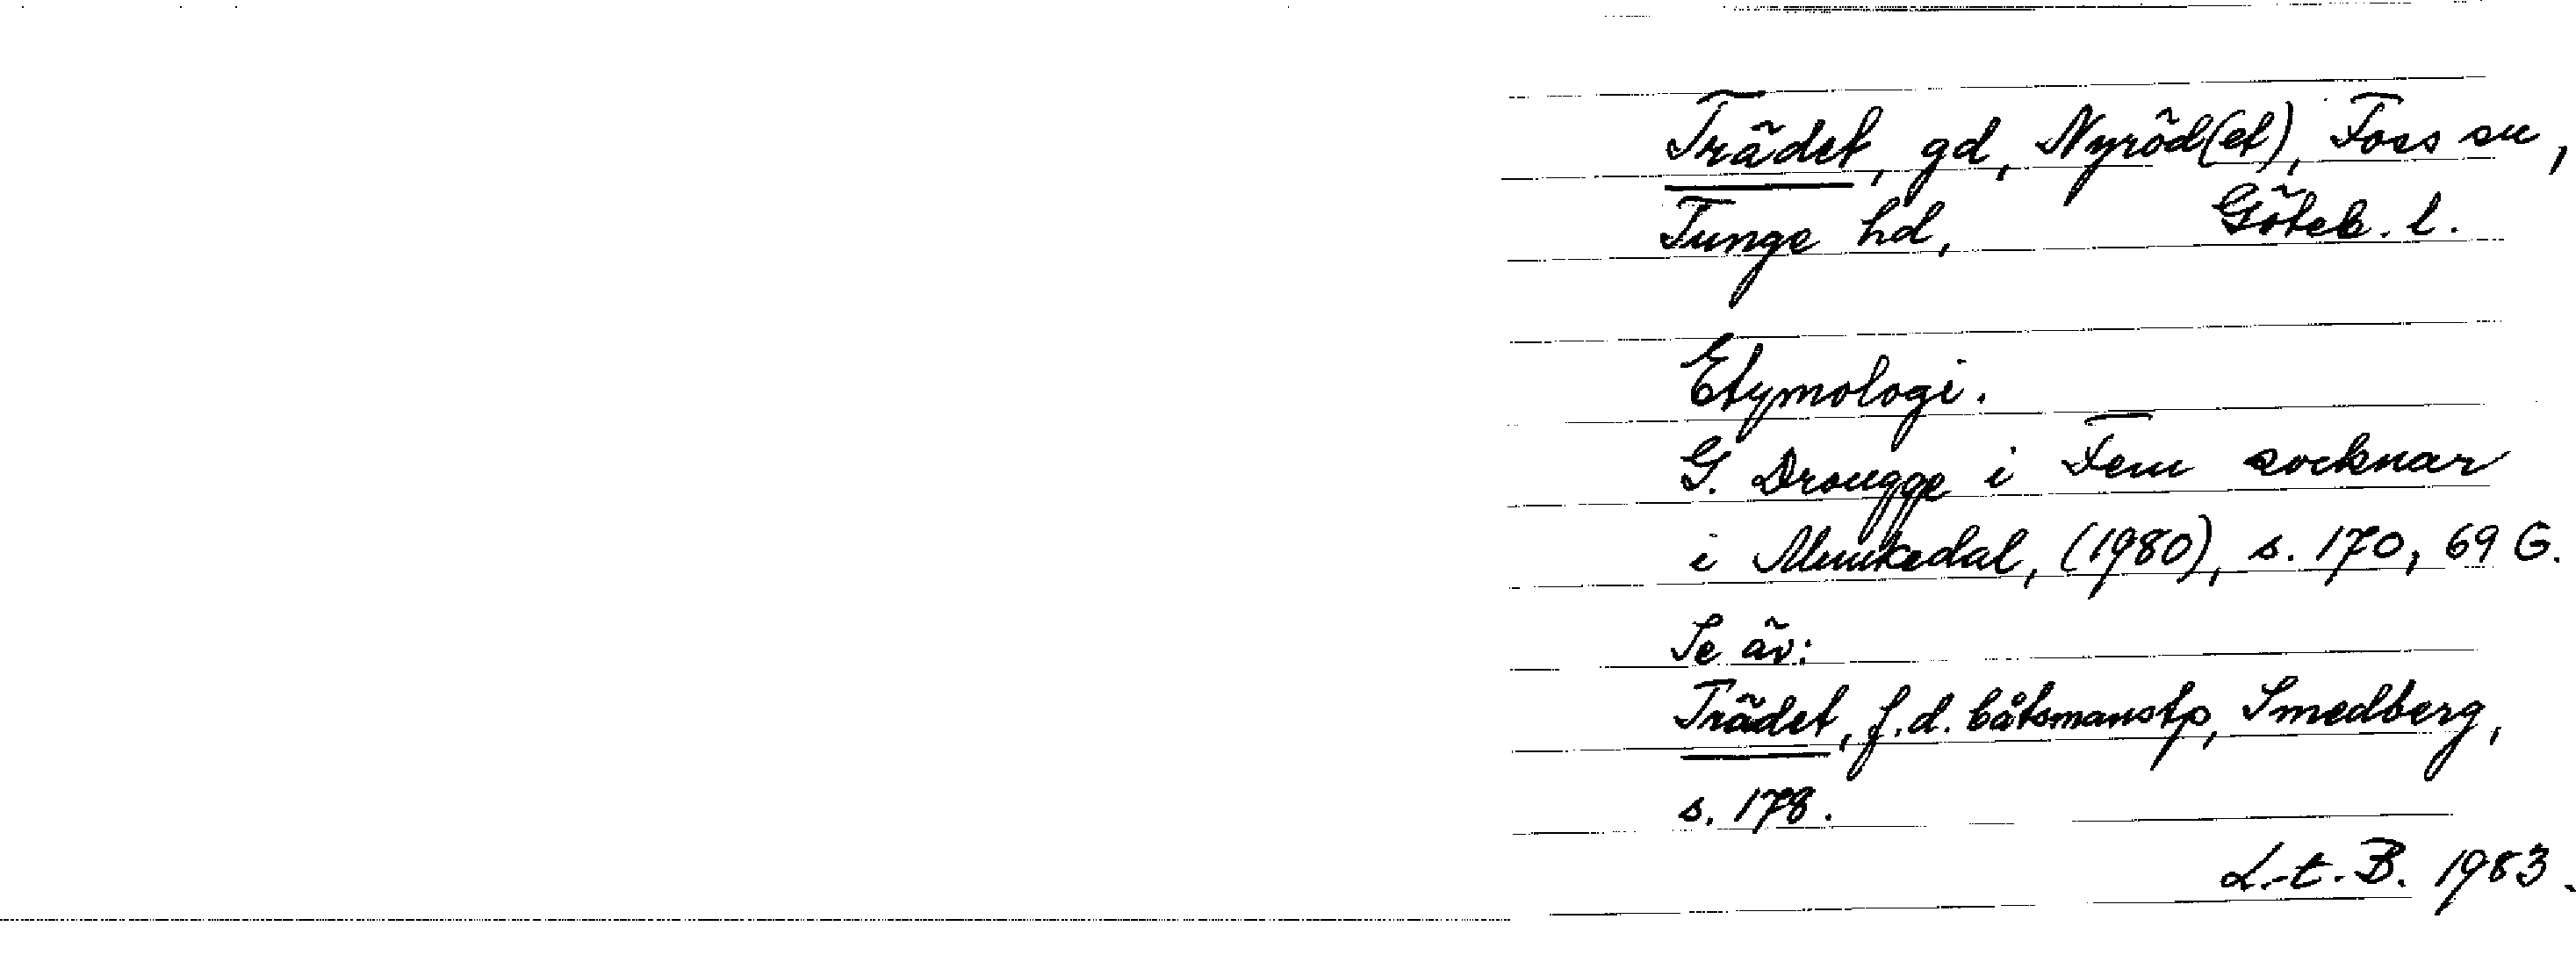 Trädet, gd, Nyröd(et), Foss sn,
Tunge hd, Göteb. l.
Etymologi.
G. Drougge i Fem socknar
i Munkedal, (1980), s. 170, 69 G.
Se äv:
Trädet, f.d. båtsmanstp, Smedberg,
s. 178.
L-t. B. 1983.